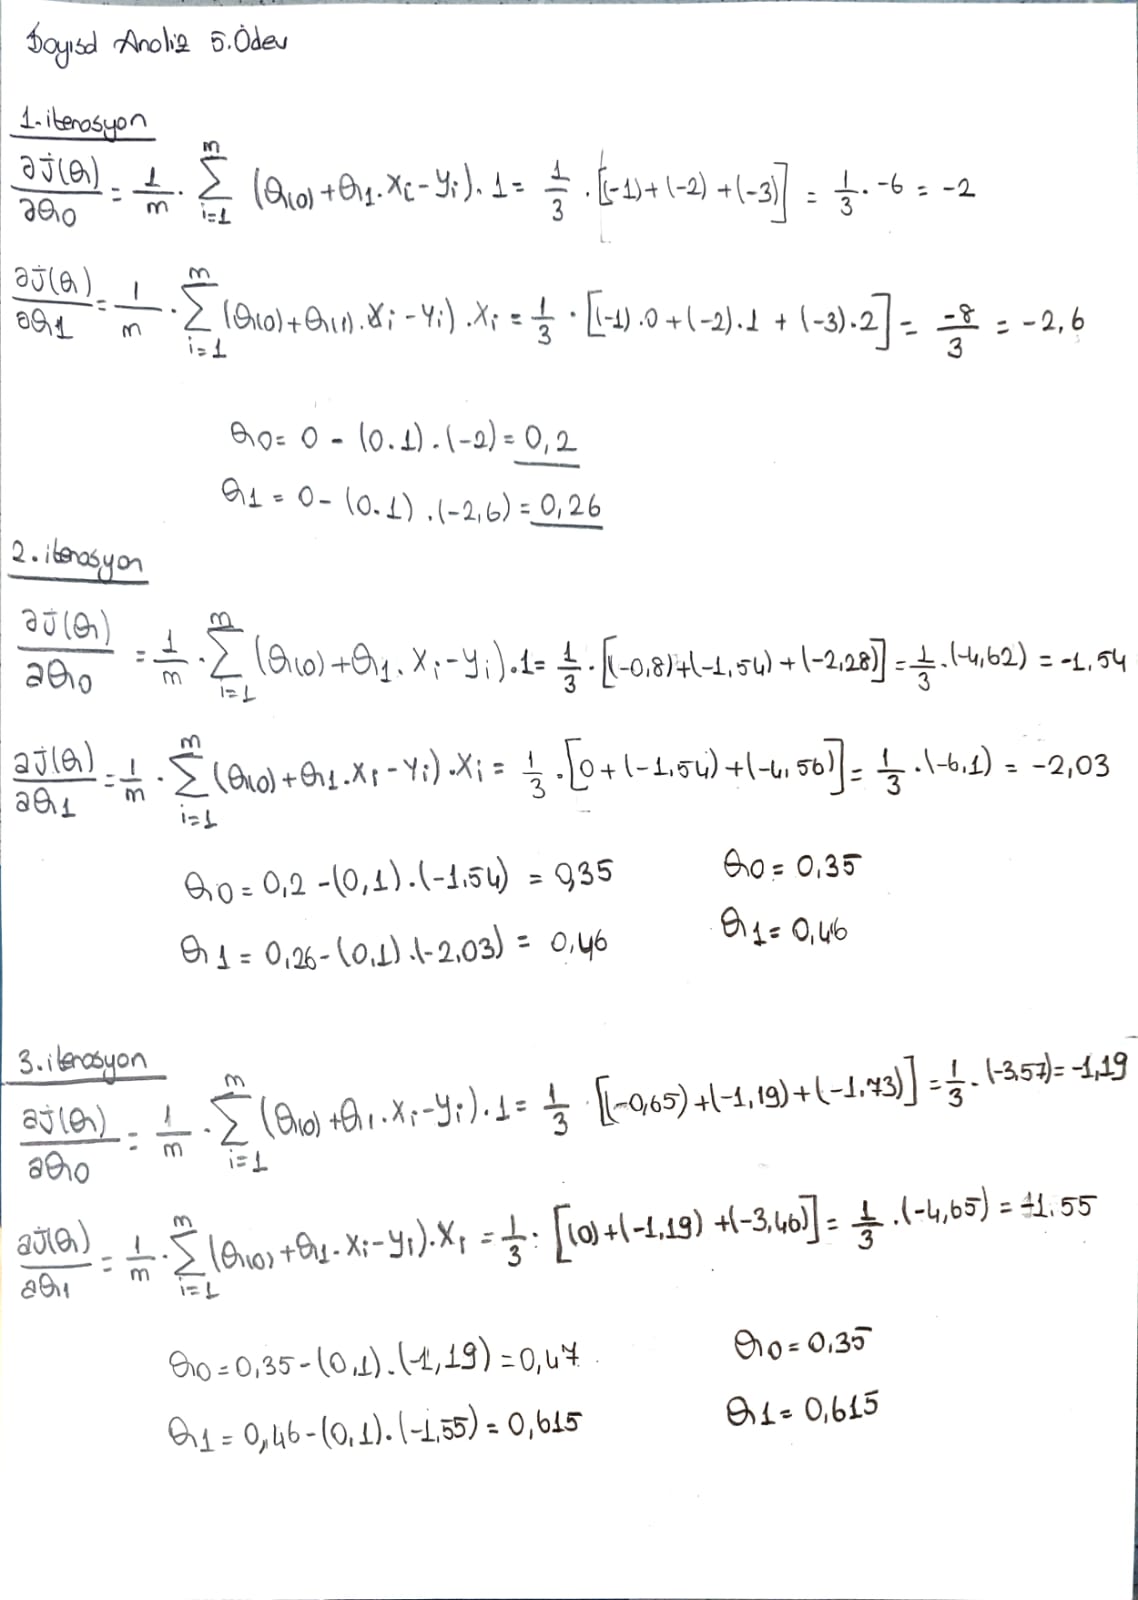 Sayısal Analiz 5.Ödev
1.iterasyon
∂J(θ)/∂θ0 = 1/m . Σ_{i=1}^{m} (θ(0)+θ1.xi-yi).1 = 1/3 . [(-1)+(-2)+(-3)] = 1/3 . -6 = -2
∂J(θ)/∂θ1 = 1/m . Σ_{i=1}^{m} (θ(0)+θ(1).xi-yi).xi = 1/3 . [(-1).0+(-2).1+(-3).2] = -8/3 = -2,6
θ0 = 0 - (0.1).(-2) = 0,2
θ1 = 0 - (0.1).(-2,6) = 0,26
2.iterasyon
∂J(θ)/∂θ0 = 1/m . Σ_{i=1}^{m} (θ(0)+θ1.xi-yi).1 = 1/3 . [(-0,8)+(-1,54)+(-2,28)] = 1/3 . (-4,62) = -1,54
∂J(θ)/∂θ1 = 1/m . Σ_{i=1}^{m} (θ(0)+θ1.xi-yi).xi = 1/3 . [0+(-1,54)+(-4,56)] = 1/3 . (-6,1) = -2,03
θ0 = 0,2 - (0,1).(-1,54) = 0,35 θ0 = 0,35
θ1 = 0,26 - (0,1).(-2,03) = 0,46 θ1 = 0,46
3.iterasyon
∂J(θ)/∂θ0 = 1/m . Σ_{i=1}^{m} (θ(0)+θ1.xi-yi).1 = 1/3 . [(-0,65)+(-1,19)+(-1,73)] = 1/3 . (-3,57) = -1,19
∂J(θ)/∂θ1 = 1/m . Σ_{i=1}^{m} (θ(0)+θ1.xi-yi).xi = 1/3 . [(0)+(-1,19)+(-3,46)] = 1/3 . (-4,65) = -1,55
θ0 = 0,35 - (0,1).(-1,19) = 0,47 θ0 = 0,35
θ1 = 0,46 - (0,1).(-1,55) = 0,615 θ1 = 0,615